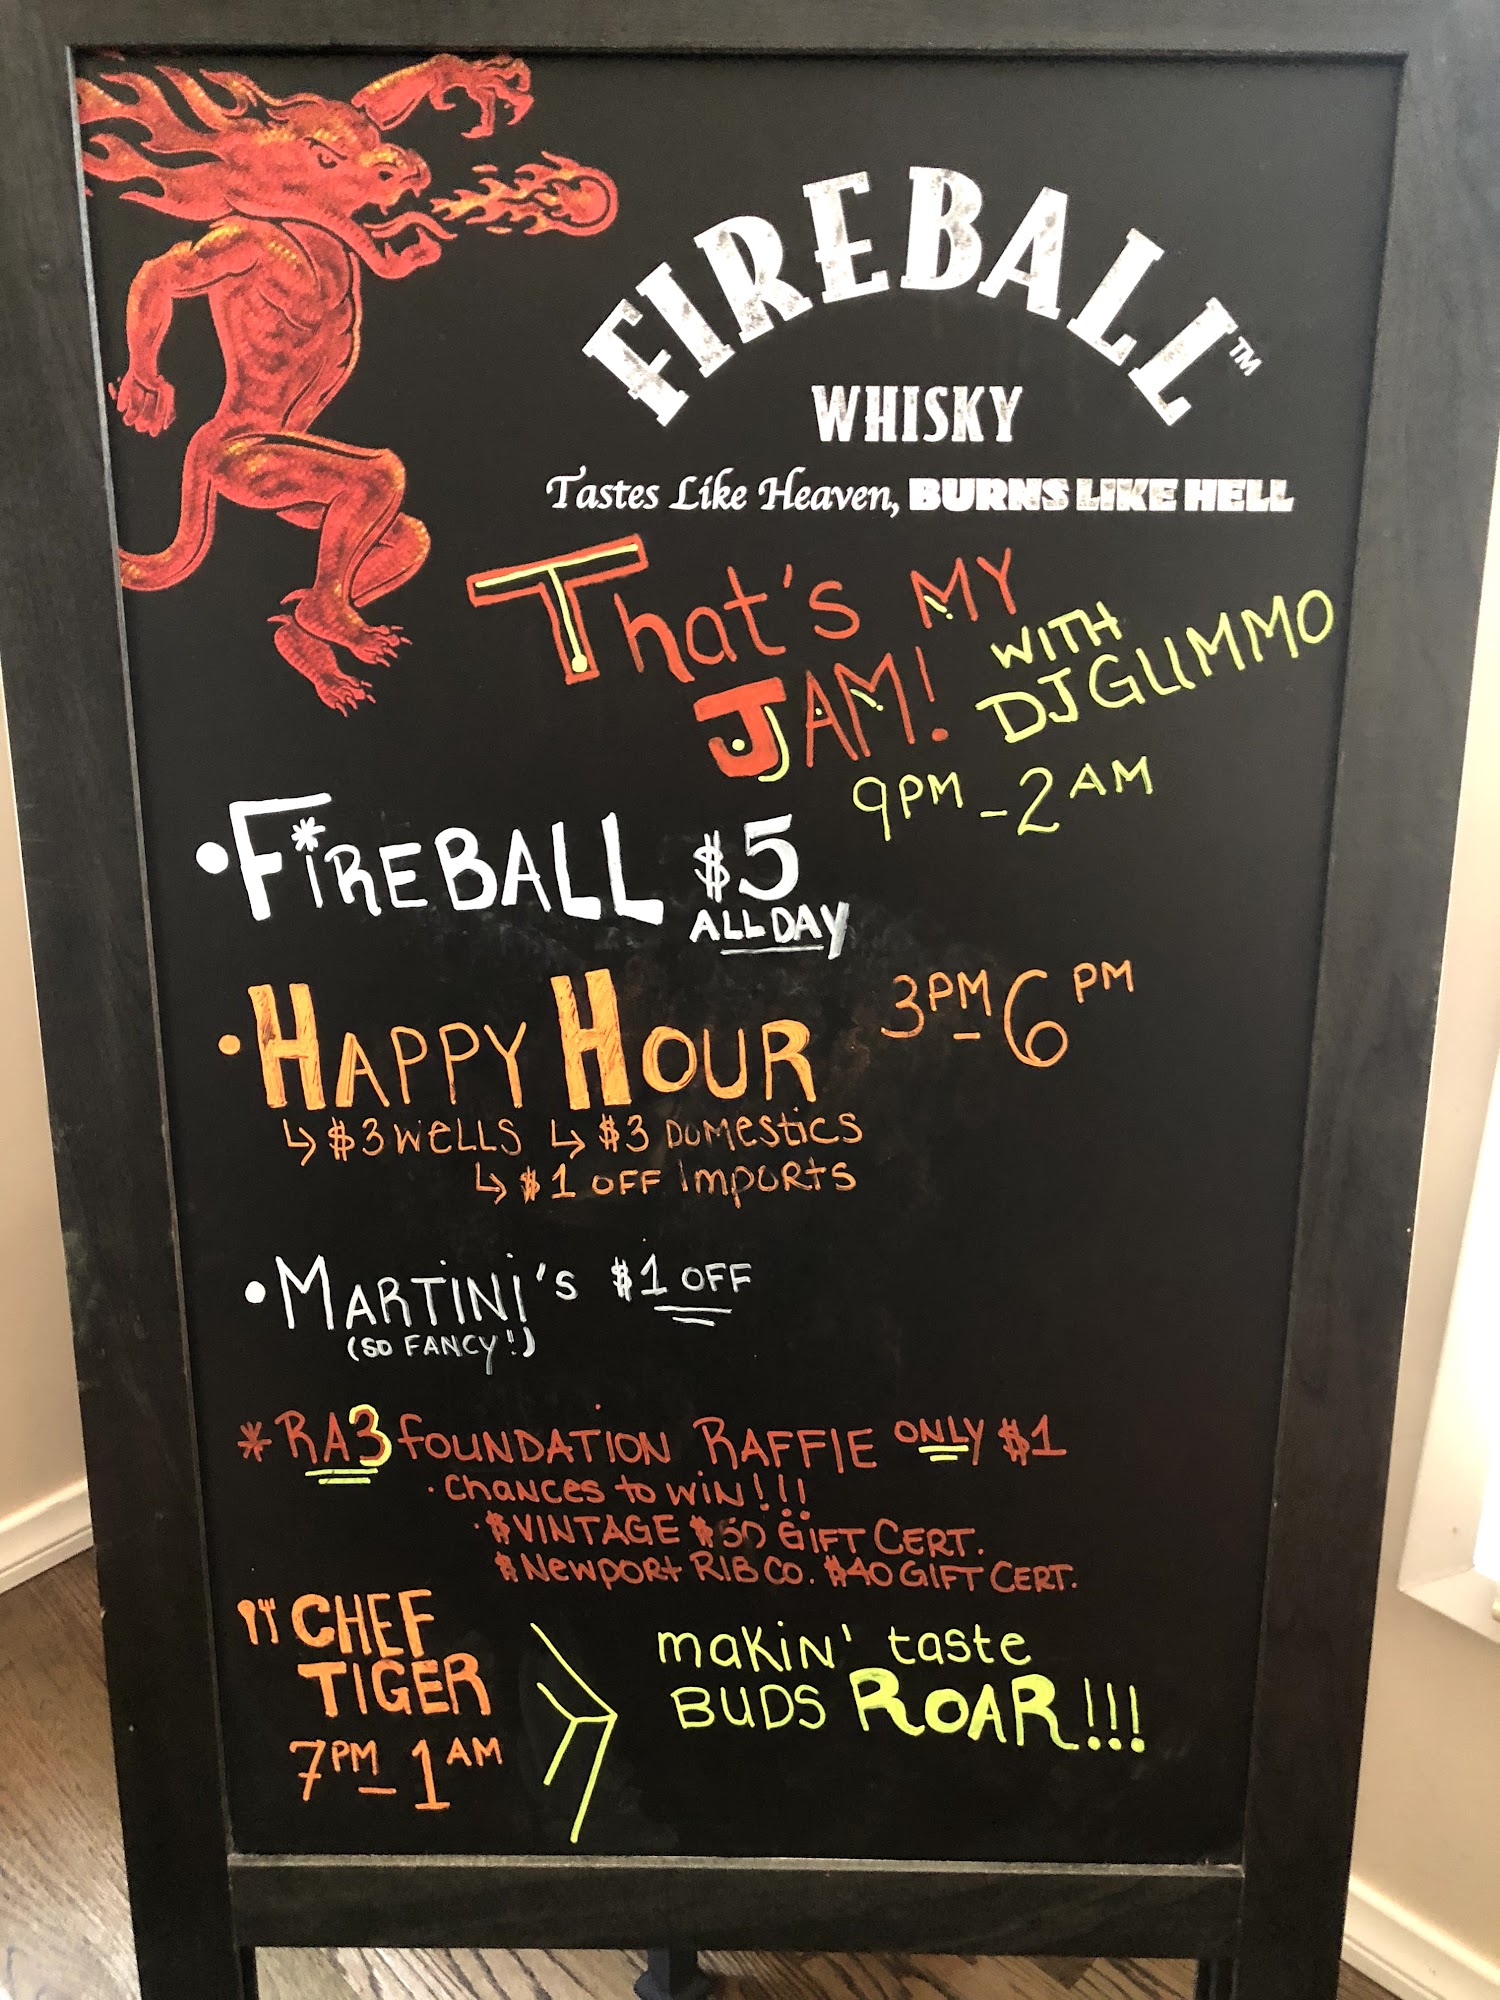 FIREBALL™
WHISKY
Tastes Like Heaven, BURNS LIKE HELL
That's MY
JAM!
WITH
DJ GLIMMO
9PM - 2AM
• FIREBALL $5
ALL DAY
• HAPPY HOUR 3PM - 6PM
↳ $3 WELLS ↳ $3 DOMESTICS
↳ $1 OFF IMPORTS
• MARTINI'S $1 OFF
(SO FANCY!)
* RA3 FOUNDATION RAFFLE ONLY $1
• CHANCES to WIN!!!
• $ VINTAGE $50 GIFT CERT.
$ Newport RIB CO. $40 GIFT CERT.
CHEF
TIGER
7PM - 1AM
makin' taste
BUDS ROAR!!!